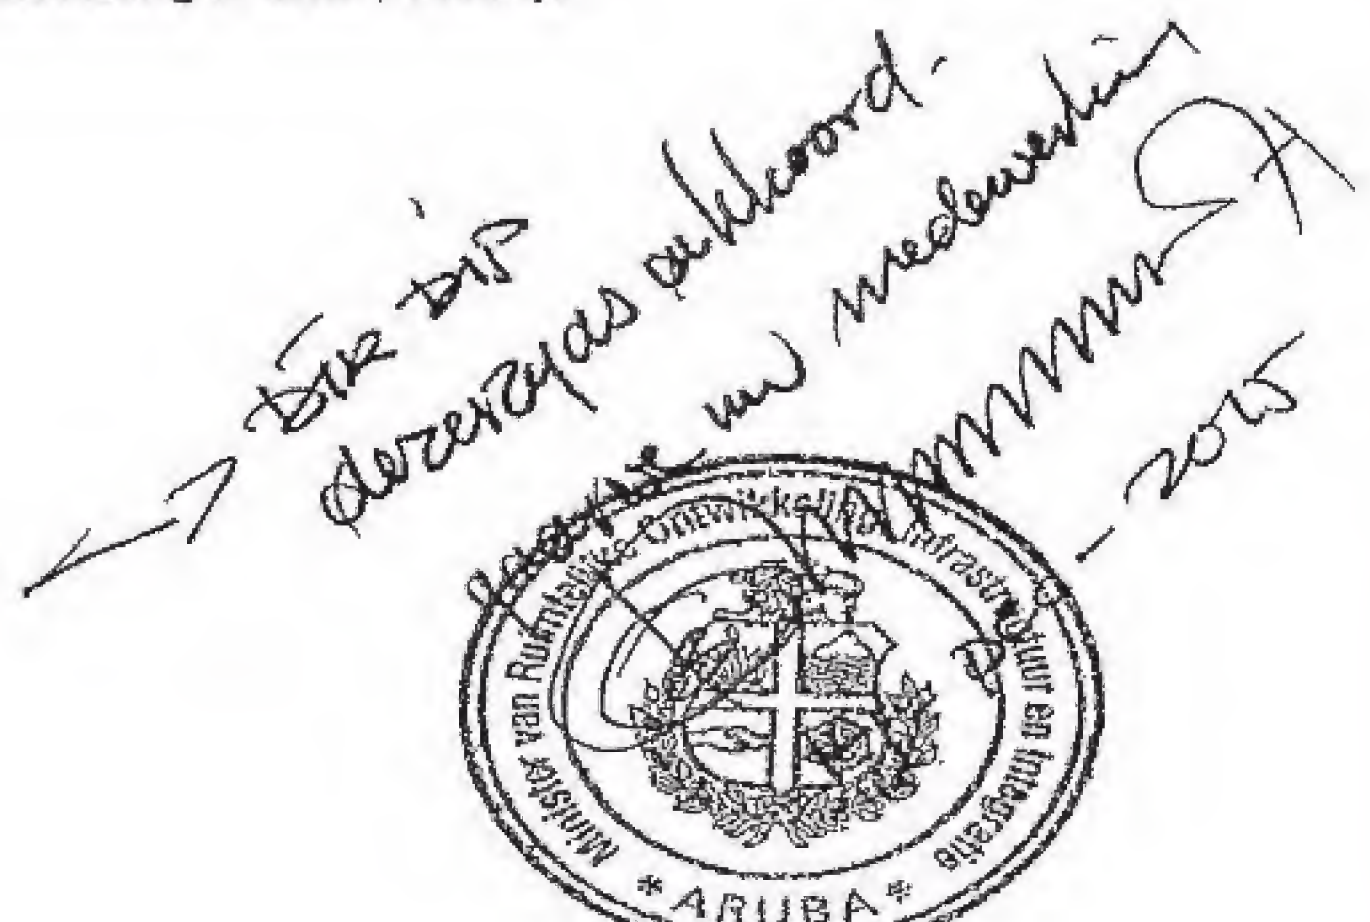 → DIR DIP
derezyds akkoord.
uw medewerking
- 2015
Minister van Ruimtelijke Ontwikkeling, Infrastructuur en Integratie
* ARUBA *